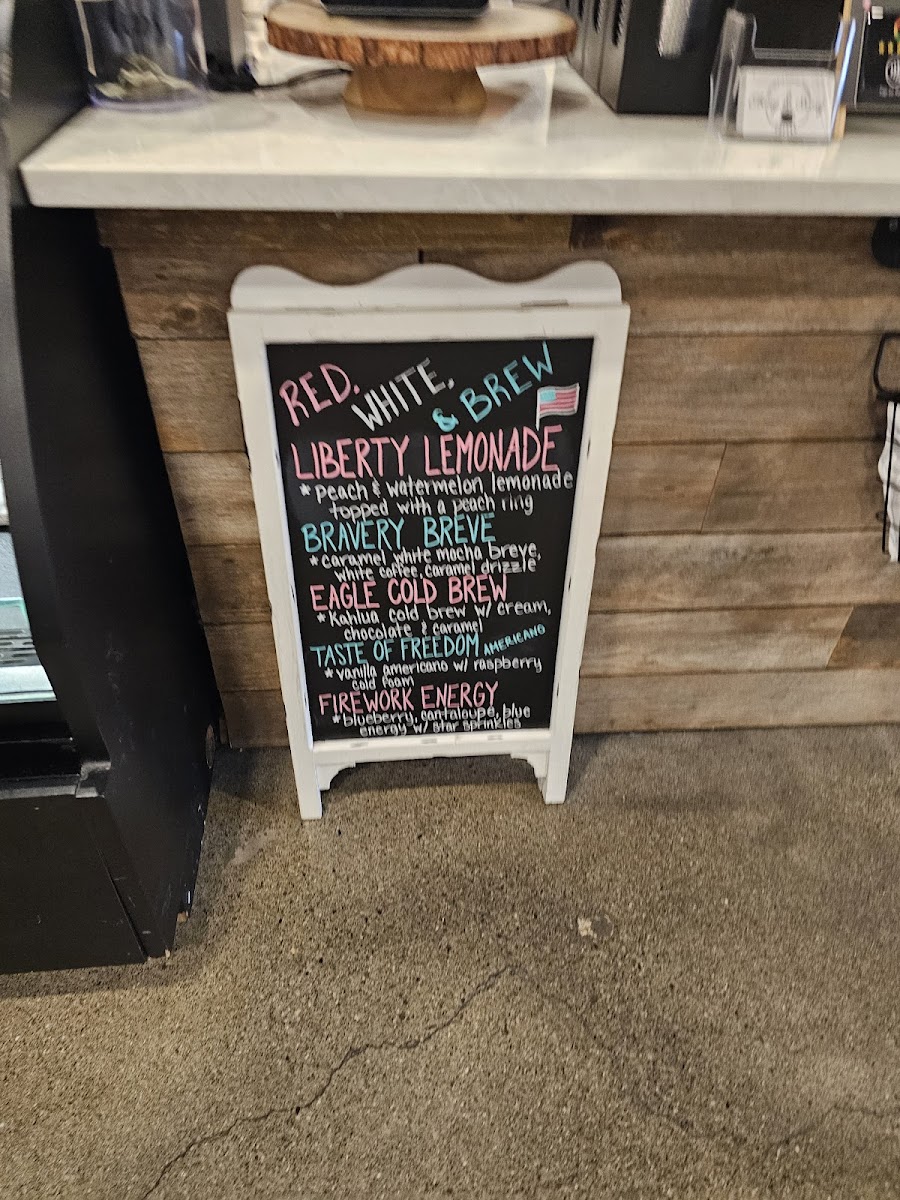 RED. WHITE, & BREW
LIBERTY LEMONADE
* peach & watermelon lemonade
topped with a peach ring
BRAVERY BREVE
* caramel white mocha breve,
white coffee, caramel drizzle
EAGLE COLD BREW
* Kahlua cold brew w/ cream,
chocolate & caramel
TASTE OF FREEDOM AMERICANO
* vanilla americano w/ raspberry
cold foam
FIREWORK ENERGY
* blueberry, cantaloupe, blue
energy w/ star sprinkles